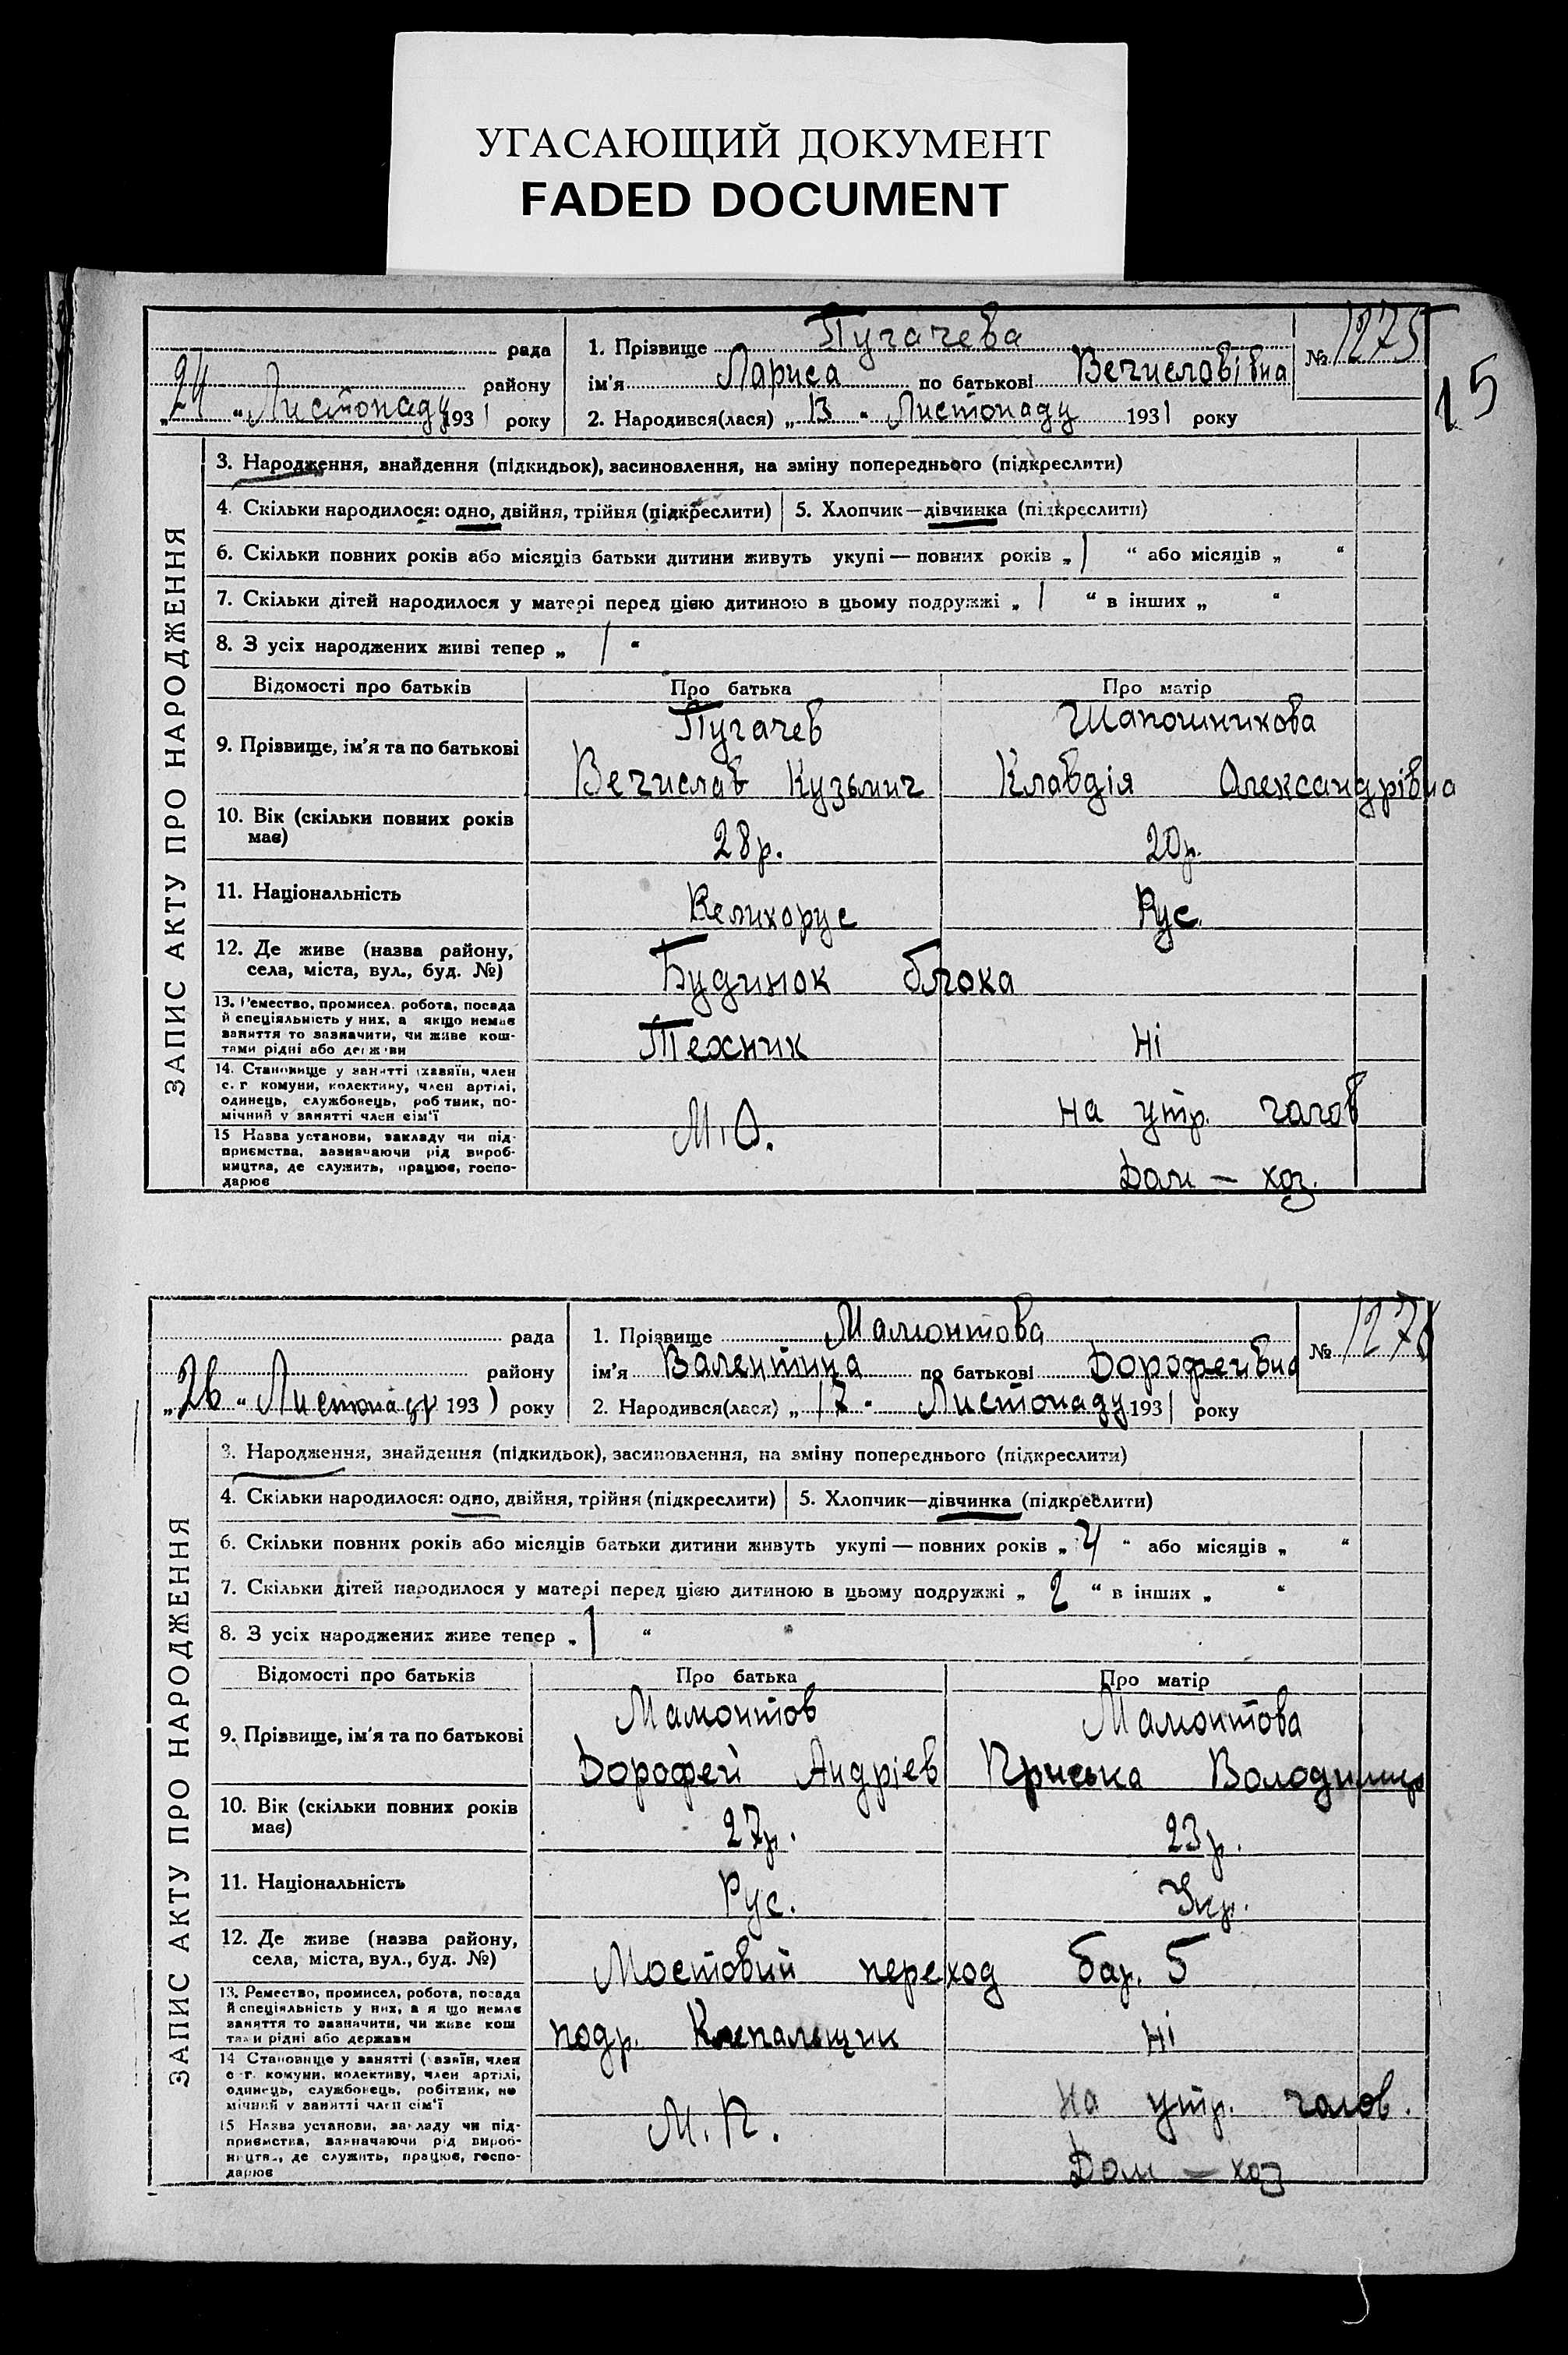 УГАСАЮЩИЙ ДОКУМЕНТ
FADED DOCUMENT
15
ЗАПИС АКТУ ПРО НАРОДЖЕННЯ
рада
району
„24“ Листопаду 1931 року
1. Прізвище Пугачева
№ 1275
ім'я Лариса по батькові Вечиславівна
2. Народився(лася) „13“ Листопаду 1931 року
3. Народження, знайдення (підкидьок), засиновлення, на зміну попереднього (підкреслити)
4. Скільки народилося: одно, двійня, трійня (підкреслити) 5. Хлопчик—дівчинка (підкреслити)
6. Скільки повних років або місяців батьки дитини живуть укупі — повних років „1“ або місяців „ “
7. Скільки дітей народилося у матері перед цією дитиною в цьому подружжі „1“ в інших „ “
8. З усіх народжених живі тепер „1“
Відомості про батьків Про батька Про матір
9. Прізвище, ім'я та по батькові
Пугачев
Вечислав Кузьмич
Шапошникова
Клавдія Олександрівна
10. Вік (скільки повних років має)
28р. 20р.
11. Національність Великорус Рус.
12. Де живе (назва району,
села, міста, вул., буд. №)
Будинок блока
13. Ремество, промисел, робота, посада
й спеціяльність у них, а якщо немає
заняття то зазначити, чи живе кош-
тами рідні або держави
Технник Ні
14. Становище у занятті (хазяїн, член
с. г. комуни, колективу, член артілі,
одинець, службовець, робітник, по-
мічний у занятті член сім'ї
на утр. чагов
15 Назва установи, закладу чи під-
приємства, зазначаючи рід вироб-
ництва, де служить, працює, госпо-
дарює
М.О. Дом — хоз.
ЗАПИС АКТУ ПРО НАРОДЖЕННЯ
рада
району
„26“ Листопаду 1931 року
1. Прізвище Мамонтова
№ 1276
ім'я Валентина по батькові Дорофеївна
2. Народився(лася) „17“ Листопаду 1931 року
3. Народження, знайдення (підкидьок), засиновлення, на зміну попереднього (підкреслити)
4. Скільки народилося: одно, двійня, трійня (підкреслити) 5. Хлопчик—дівчинка (підкреслити)
6. Скільки повних років або місяців батьки дитини живуть укупі — повних років „4“ або місяців „ “
7. Скільки дітей народилося у матері перед цією дитиною в цьому подружжі „2“ в інших „ “
8. З усіх народжених живе тепер „1“
Відомості про батьків Про батька Про матір
9. Прізвище, ім'я та по батькові
Мамонтов
Дорофей Андріев
Мамонтова
Приська Володимир
10. Вік (скільки повних років має)
27р. 23р.
11. Національність Рус. Укр.
12. Де живе (назва району,
села, міста, вул., буд. №)
Мостовий переход бар. 5
13. Ремество, промисел, робота, посада
й спеціяльність у них, а якщо немає
заняття то зазначити, чи живе кош
тами рідні або держави
подр. Клепальщик Ні
14 Становище у занятті (хазяїн, член
с. г. комуни, колективу, член артілі,
одинець, службовець, робітник, по
мічний у занятті член сім'ї
на утр. чагов.
15 Назва установи, закладу чи під-
приємства, зазначаючи рід вироб-
ництва, де служить, працює, госпо-
дарює
М.П. Дом — хоз